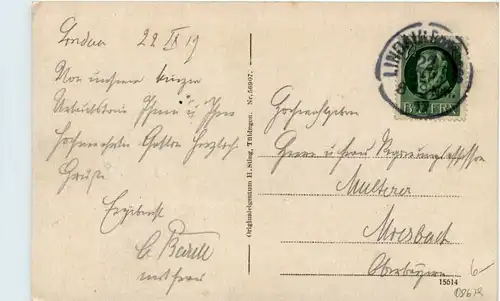 Lindau 22 IX 19
Von unserer kurzen
Ihnen u. Ihrer
hochverehrten Gattin herzliche
Grüße
Ergebenst
mit Frau
Originaleigentum H. Sting, Tübingen. Nr. 56907.
LINDAU
BAYERN
Hochwohlgeboren
Herrn u Frau Regierungsassessor
Multerer
Miesbach
Oberbayern
15614
6-